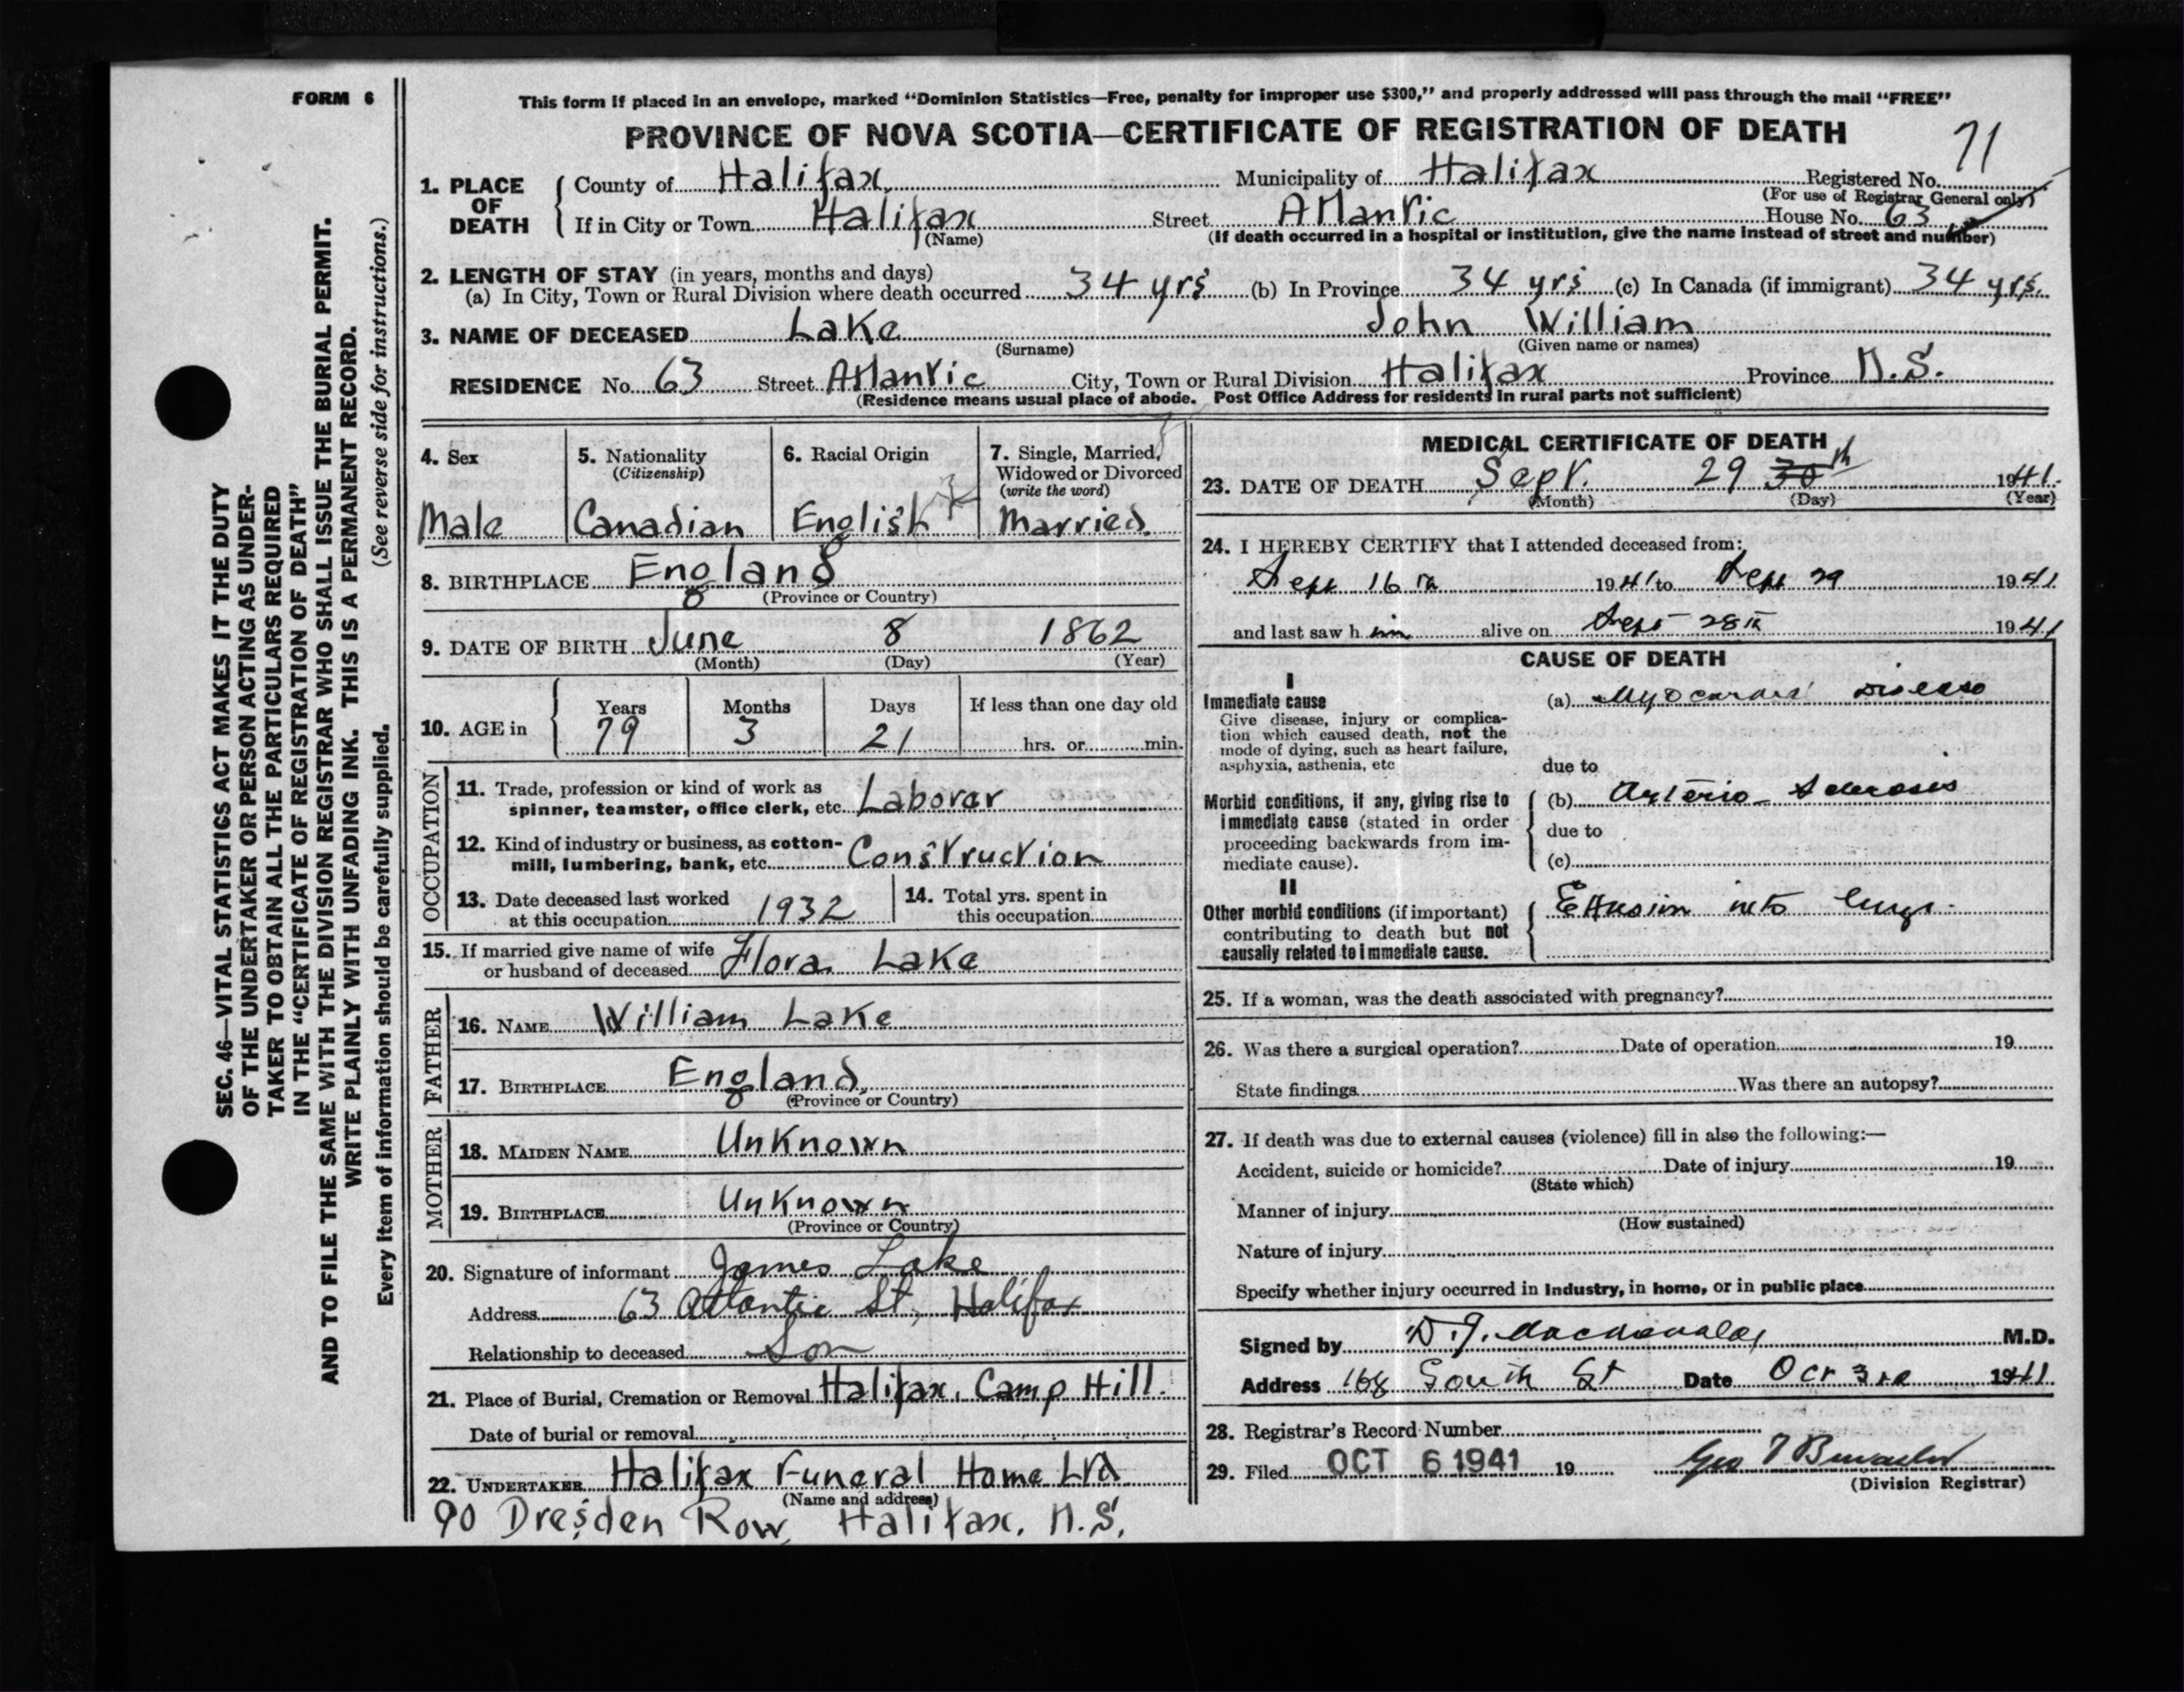 FORM 6
This form if placed in an envelope, marked “Dominion Statistics—Free, penalty for improper use $300,” and properly addressed will pass through the mail “FREE”
PROVINCE OF NOVA SCOTIA—CERTIFICATE OF REGISTRATION OF DEATH
71
1. PLACE OF DEATH
County of Halifax, Municipality of Halifax Registered No.
(For use of Registrar General only)
If in City or Town Halifax Street Atlantic House No. 63
(Name) (If death occurred in a hospital or institution, give the name instead of street and number)
2. LENGTH OF STAY (in years, months and days)
(a) In City, Town or Rural Division where death occurred 34 yrs (b) In Province 34 yrs (c) In Canada (if immigrant) 34 yrs.
3. NAME OF DECEASED Lake John William
(Surname) (Given name or names)
RESIDENCE No. 63 Street Atlantic City, Town or Rural Division Halifax Province N.S.
(Residence means usual place of abode. Post Office Address for residents in rural parts not sufficient)
4. Sex
Male
5. Nationality
(Citizenship)
Canadian
6. Racial Origin
English
7. Single, Married,
Widowed or Divorced
(write the word)
Married.
8. BIRTHPLACE England
(Province or Country)
9. DATE OF BIRTH June 8 1862
(Month) (Day) (Year)
10. AGE in
Years Months Days If less than one day old
79 3 21 hrs. or min.
OCCUPATION
11. Trade, profession or kind of work as
spinner, teamster, office clerk, etc. Laborar
12. Kind of industry or business, as cotton-
mill, lumbering, bank, etc. Construction
13. Date deceased last worked
at this occupation 1932
14. Total yrs. spent in
this occupation
15. If married give name of wife
or husband of deceased Flora Lake
FATHER
16. NAME William Lake
17. BIRTHPLACE England,
(Province or Country)
MOTHER
18. MAIDEN NAME Unknown
19. BIRTHPLACE Unknown
(Province or Country)
20. Signature of informant James Lake
Address 63 Atlantic St, Halifax
Relationship to deceased Son
21. Place of Burial, Cremation or Removal Halifax, Camp Hill.
Date of burial or removal
22. UNDERTAKER Halifax Funeral Home Ltd
(Name and address)
90 Dresden Row, Halifax, N.S.
MEDICAL CERTIFICATE OF DEATH
23. DATE OF DEATH Sept. 29 30th 1941.
(Month) (Day) (Year)
24. I HEREBY CERTIFY that I attended deceased from:
Sept 16th 1941 to Sept 29 1941
and last saw him alive on Sept 28th 1941
CAUSE OF DEATH
I
Immediate cause
Give disease, injury or complica-
tion which caused death, not the
mode of dying, such as heart failure,
asphyxia, asthenia, etc
(a) Myocardial Disease
due to
Morbid conditions, if any, giving rise to
immediate cause (stated in order
proceeding backwards from im-
mediate cause).
(b) Arterio-Sclerosis
due to
(c)
II
Other morbid conditions (if important)
contributing to death but not
causally related to immediate cause.
Effusion into lungs.
25. If a woman, was the death associated with pregnancy?
26. Was there a surgical operation? Date of operation 19
State findings Was there an autopsy?
27. If death was due to external causes (violence) fill in also the following:—
Accident, suicide or homicide? Date of injury 19
(State which)
Manner of injury
(How sustained)
Nature of injury
Specify whether injury occurred in industry, in home, or in public place
Signed by D. J. MacDonald, M.D.
Address 168 South St Date Oct 3rd 1941
28. Registrar's Record Number
29. Filed OCT 6 1941 19 Geo
(Division Registrar)
SEC. 46—VITAL STATISTICS ACT MAKES IT THE DUTY
OF THE UNDERTAKER OR PERSON ACTING AS UNDER-
TAKER TO OBTAIN ALL THE PARTICULARS REQUIRED
IN THE “CERTIFICATE OF REGISTRATION OF DEATH”
AND TO FILE THE SAME WITH THE DIVISION REGISTRAR WHO SHALL ISSUE THE BURIAL PERMIT.
WRITE PLAINLY WITH UNFADING INK. THIS IS A PERMANENT RECORD.
Every item of information should be carefully supplied. (See reverse side for instructions.)